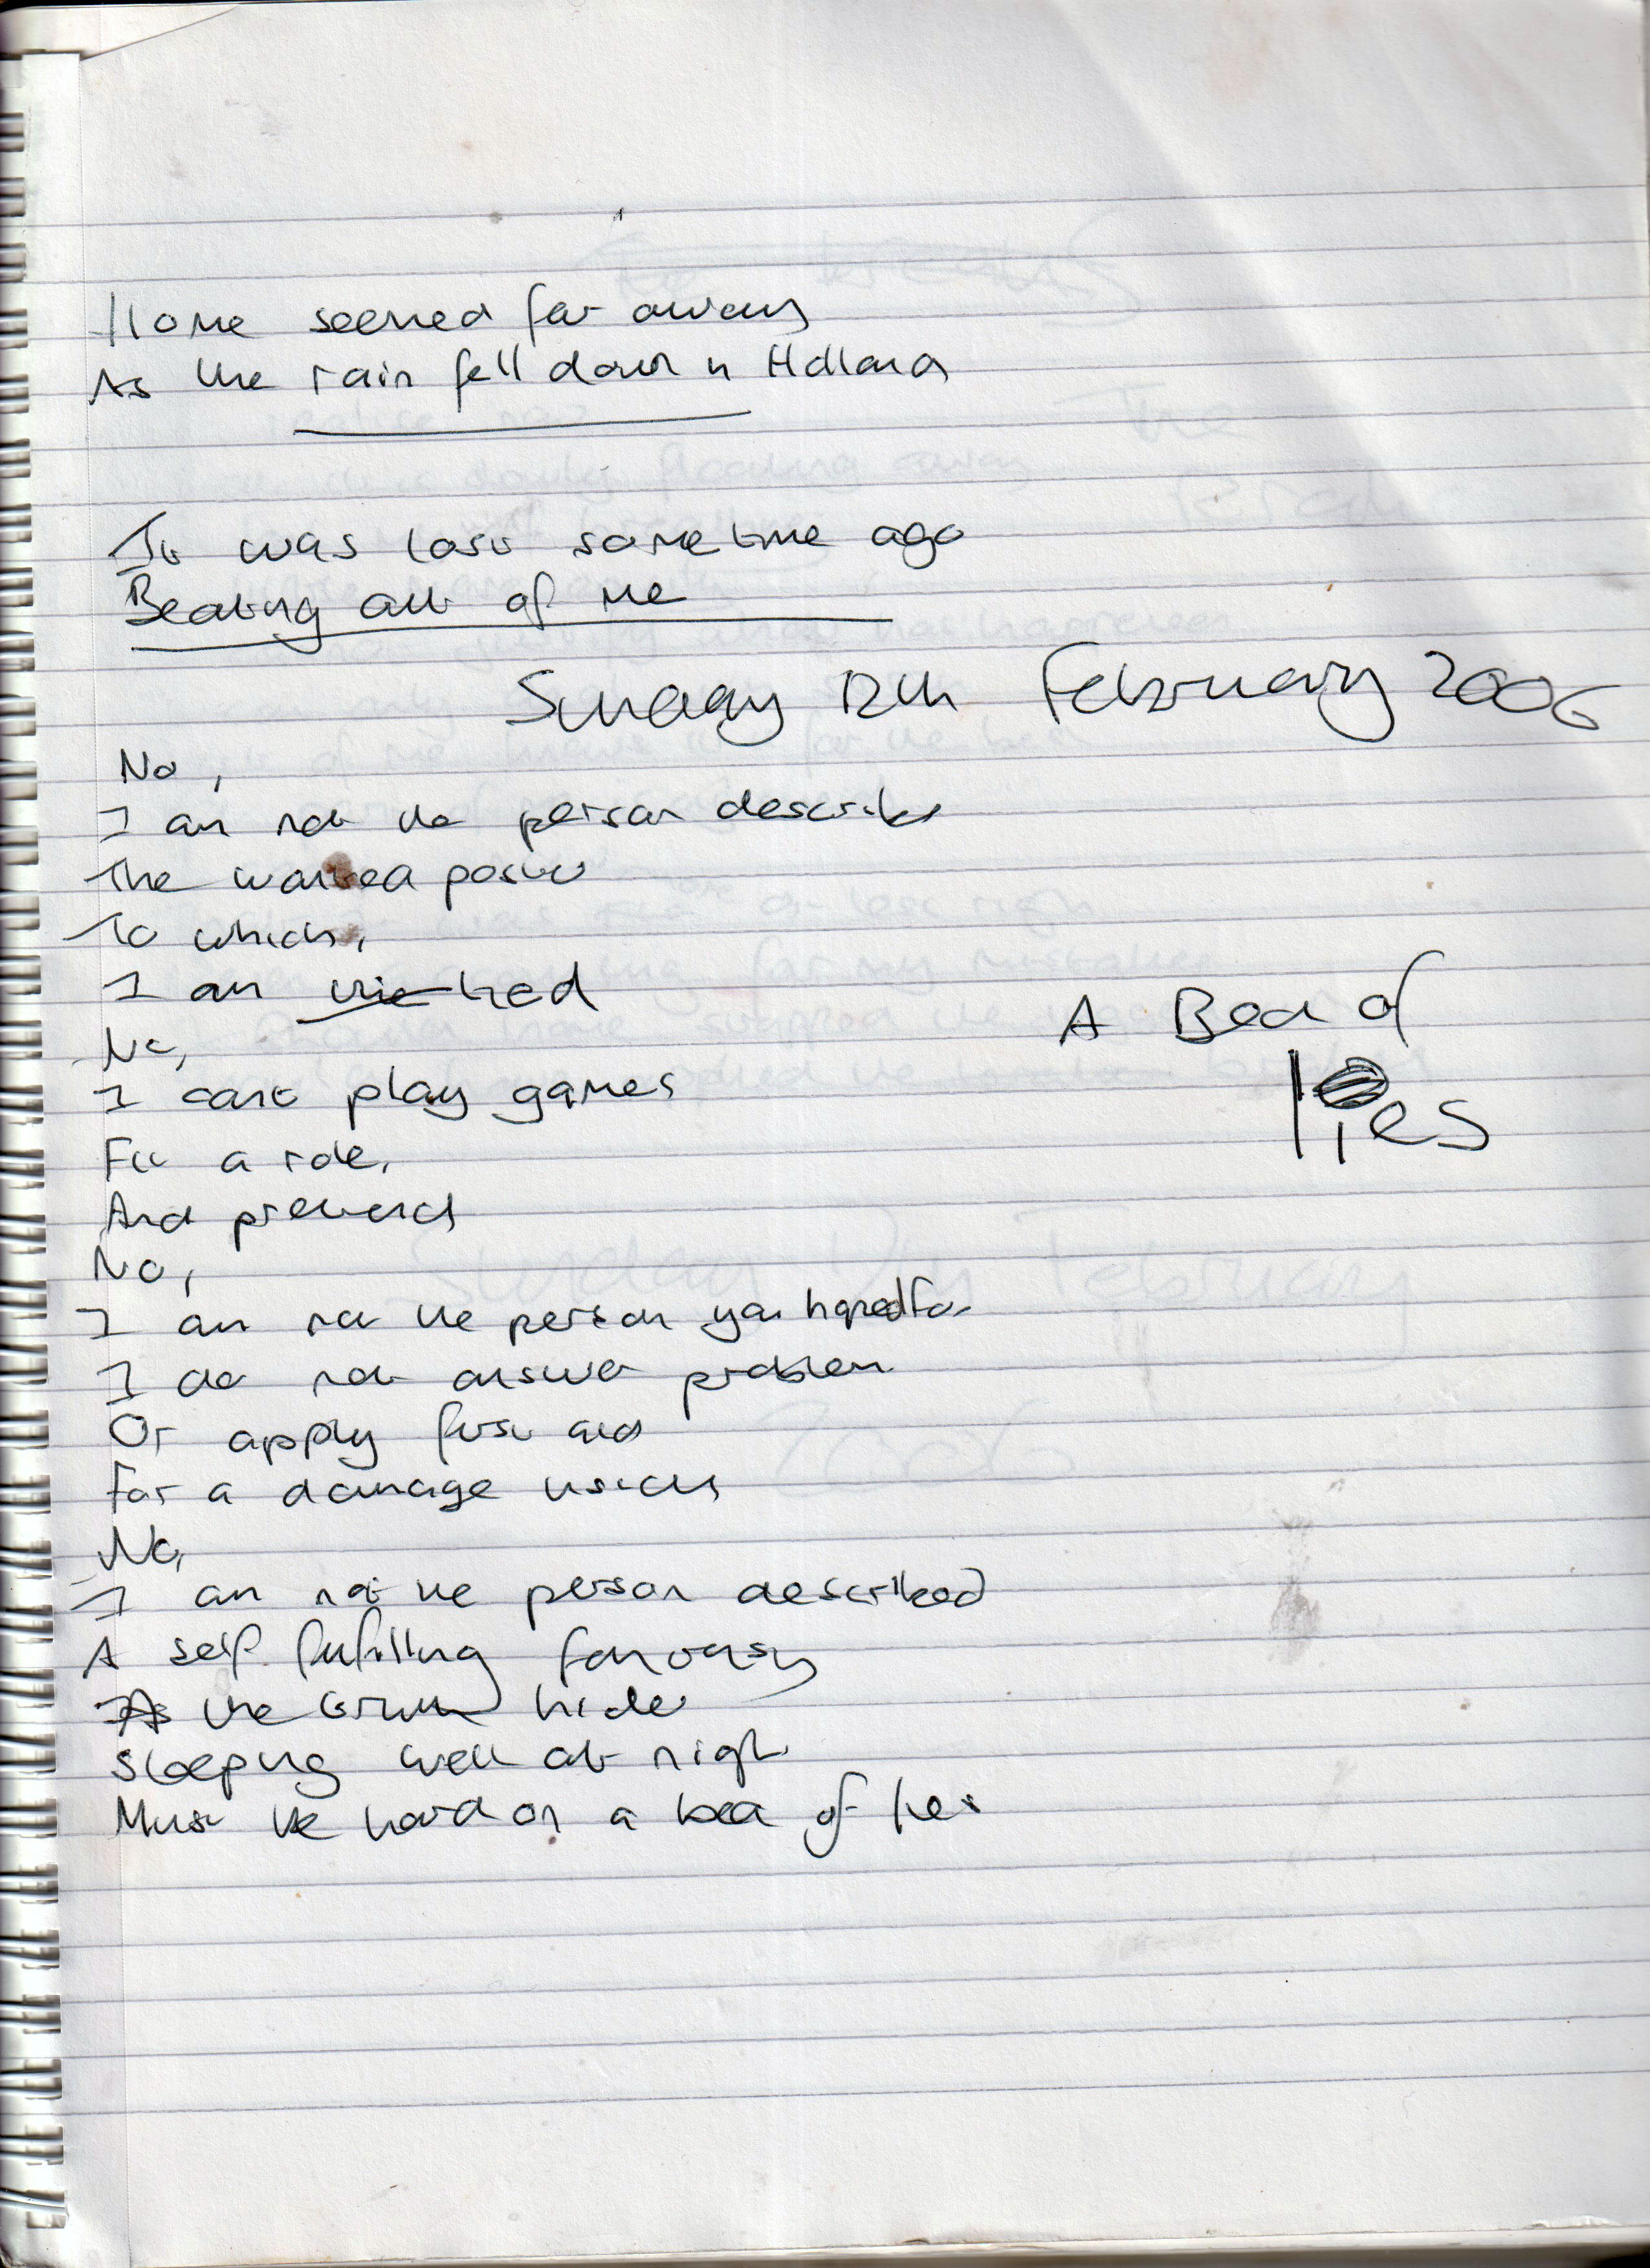 Home seemed far away
As the rain fell down in Holland
It was lost sometime ago
Beating out of me
Sunday 12th February 2006
No,
I am not the person describe
The wanted poster
To which,
I am tied
No,
I cant play games
Fit a role,
And pretend
No,
I am not the person you hoped for
I do not answer problem
Or apply first aid
For a damage
No,
I am not the person described
A self fulfilling fantasy
As the truth hides
Sleeping well at night
Must be hard on a bed of lies
A Bed of
lies